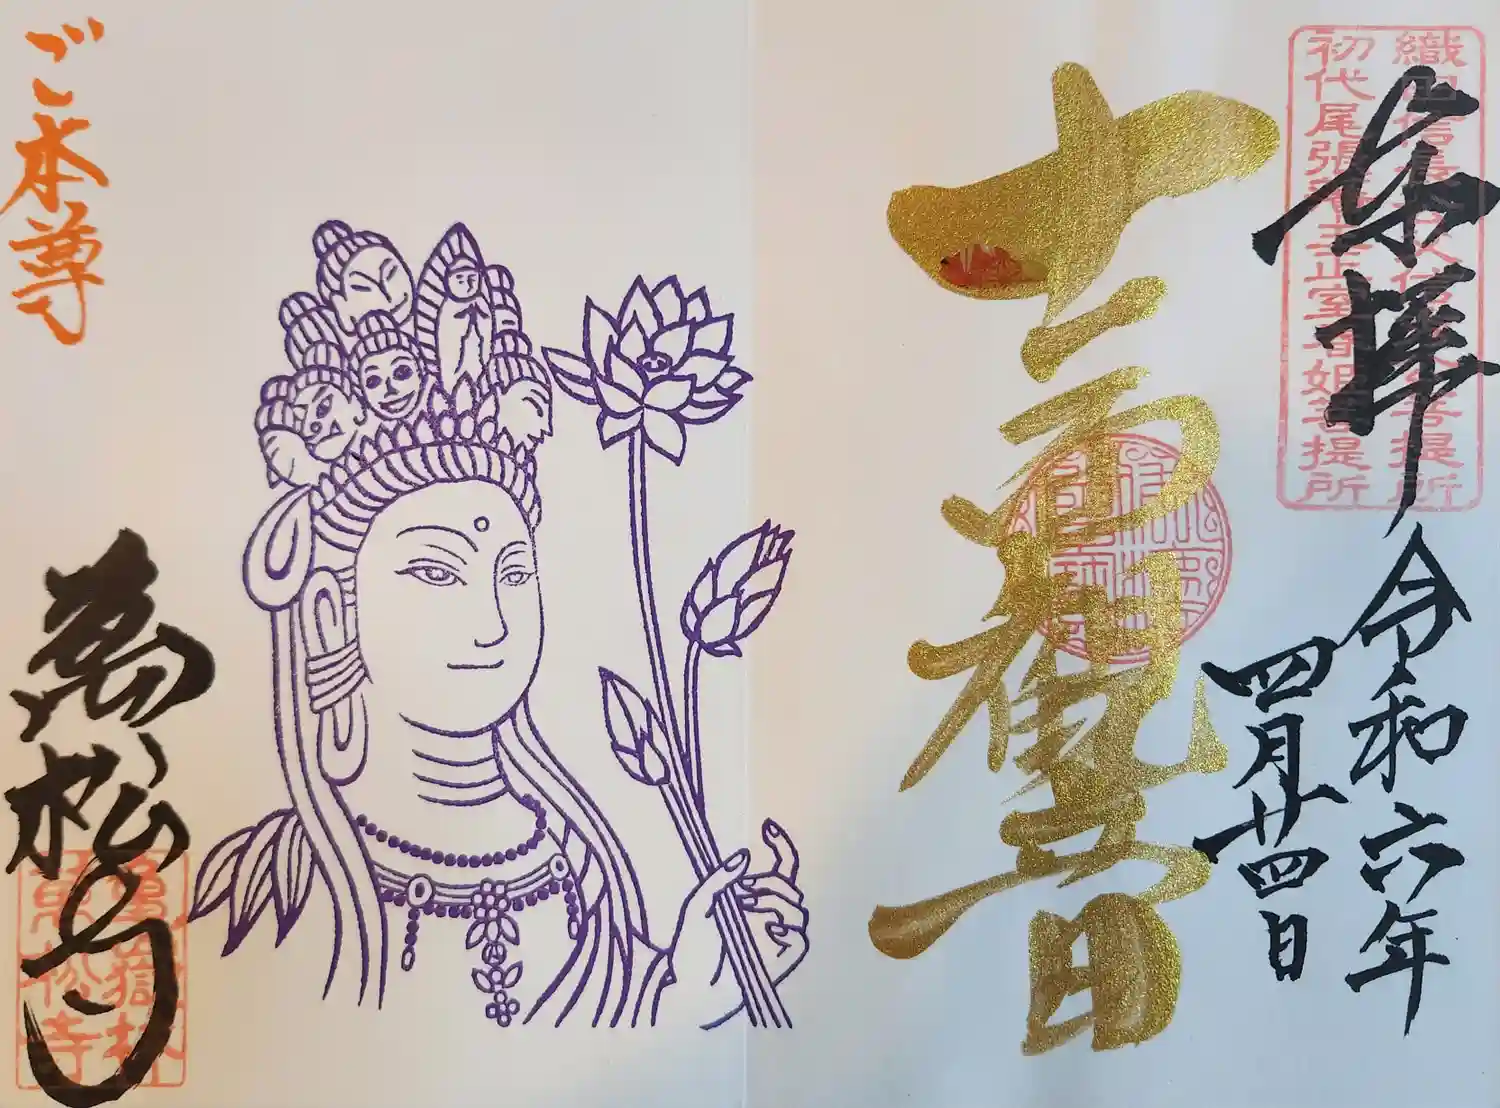 奉拝
令和六年
四月廿四日
織田信長公父信秀公菩提所
初代尾張藩主正室春姫菩提所
十一面観音
ご本尊
萬松寺
亀嶽林
萬松寺